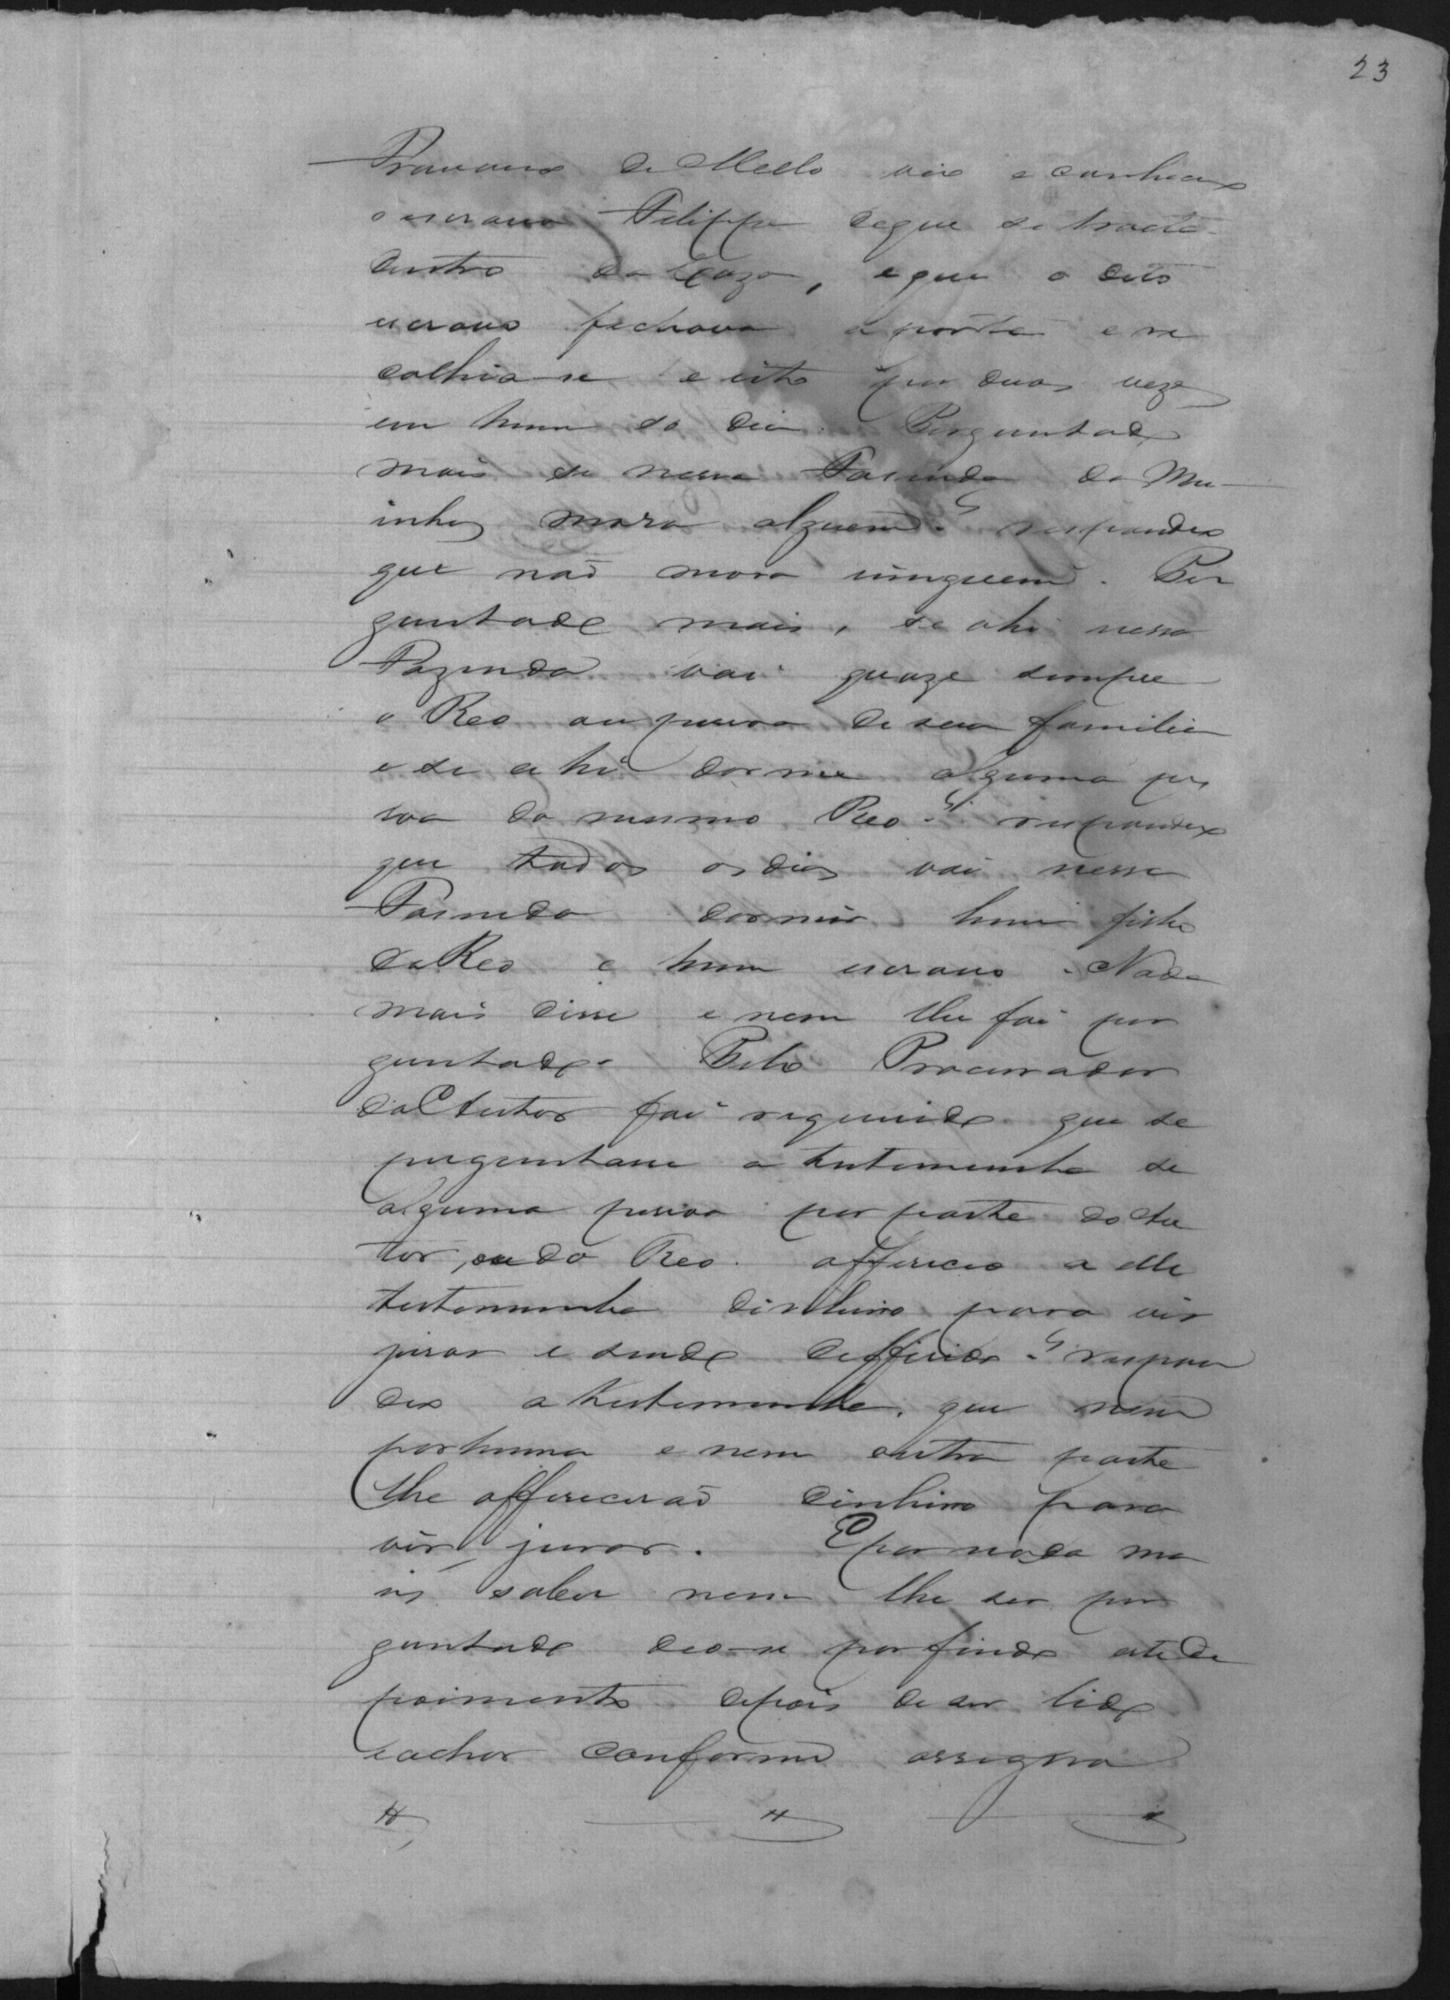 23
de Mello vio e conheceo
o escravo Felippe de que se tracta
dentro da Caza, e que o dito
escravo fechava a porta e re
colhia-se e isto por duas vezes
em hum só dia. Perguntado
mais se nessa Fasenda do Mu-
inho mora alguem? respondeo
que naõ mora ninguem. Per
guntado mais, se ahi nessa
Fazenda vai quaze sempre
o Reo ou pessoa de sua familia
e se ahi dorme alguma pes
soa do mesmo Reo? respondeo
que todos os dias vai nessa
Fasenda dormir hum filho
do Reo e hum escravo. Nada
mais disse e nem lhe foi per
guntado. Pelo Procurador
do Autor foi requerido que se
perguntasse a testemunha se
alguma pessoa por parte do Au
tor, ou do Reo offereceo a elle
testemunha dinheiro para vir
jurar e sendo defferido? respon
deo a testemunha que nem
por huma e nem outra parte
lhe offereceraõ dinheiro para
vir jurar. E por nada ma
is saber nem lhe ser per
guntado deo-se por findo este de
poimento depois de ser lido
e achar conforme assigna